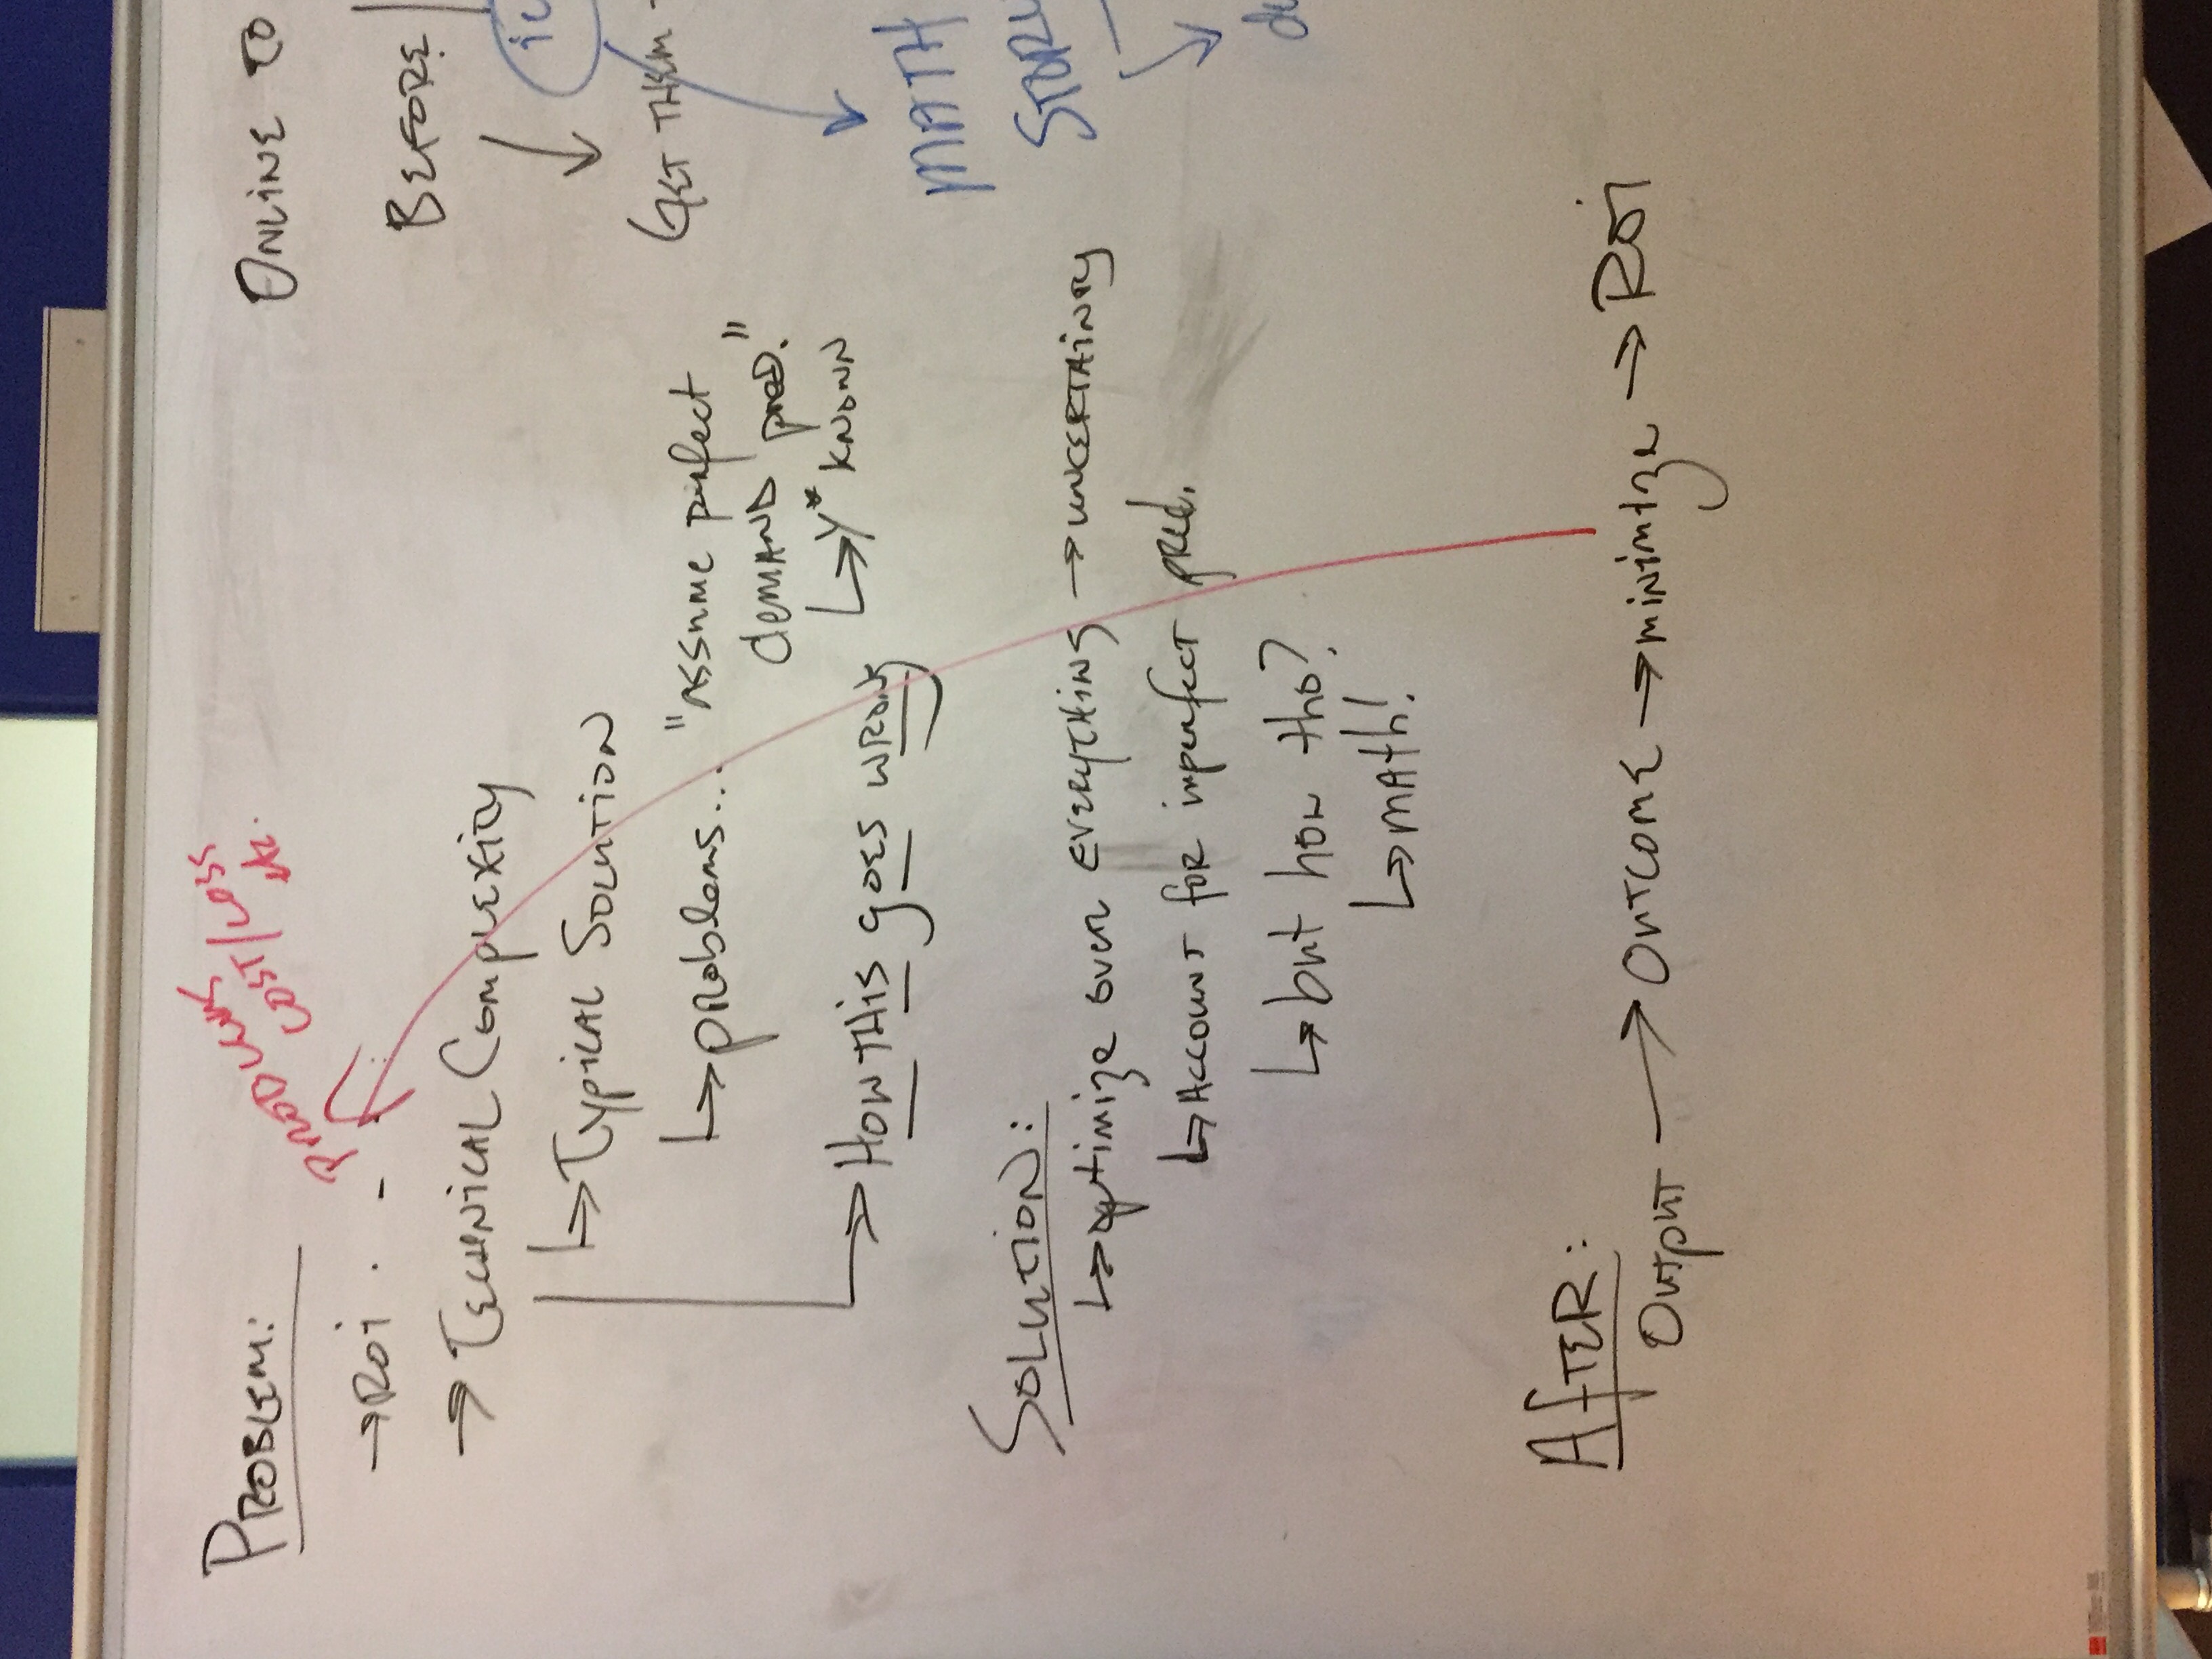 PROBLEM:
PROBLEMS
COST/LOSS
etc.
→ ROI . - .
→ TECHNICAL COMPLEXITY
↳ TYPICAL SOLUTION
↳ PROblems... "ASSUME perfect
demAND pred."
↳ Y* KNOWN
↳ HOW THIS gOES WRONg
SOLUTION:
↳ optimize over EVERYTHING → UNCERTAINTY
↳ ACCOUNT foR imperfect pred.
↳ but how tho?
↳ mAth!
AfTER:
OUTPUT → OUTCOME → minimize → ROI
ONLINE TO
BEFORE
GET THEM
MATH